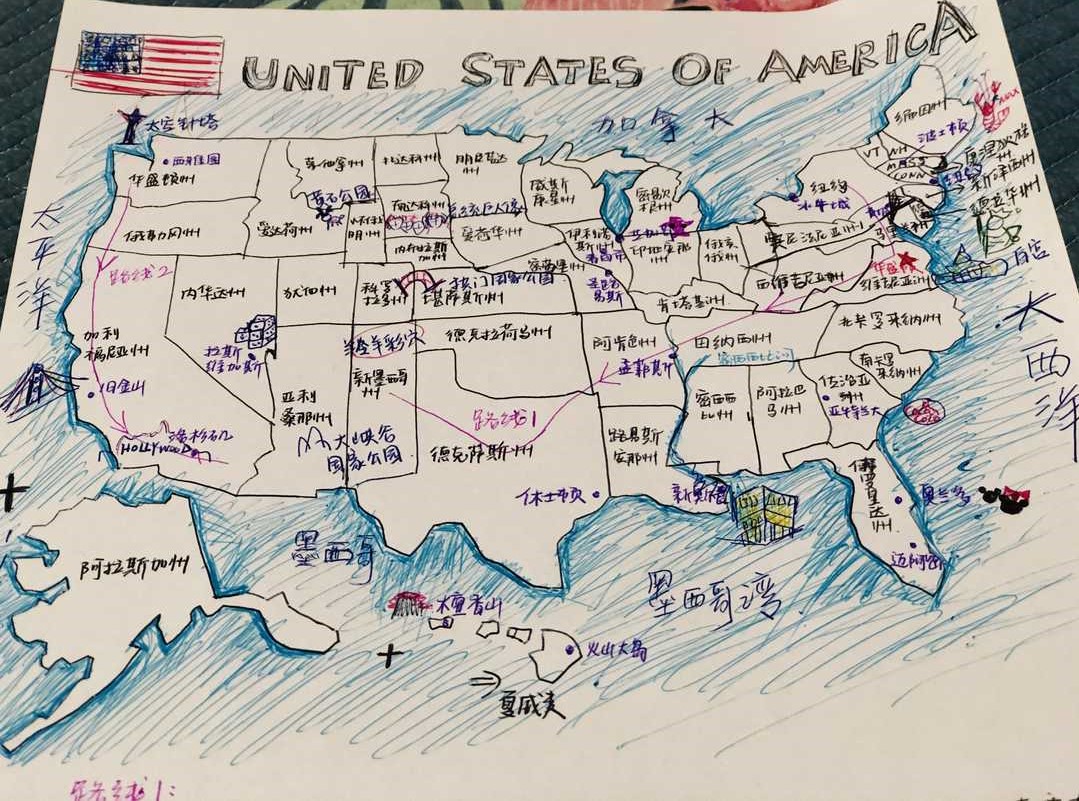 UNITED STATES OF AMERICA
太空针塔
加拿大
缅因州
波士顿
西雅图
华盛顿州
蒙他拿州
北达科州
明尼苏达
州
VT NH
MASS
CONN
新泽西州
黄石公园
威斯
康星州
密歇
根州
纽约
水牛城
太平洋
俄勒冈州
爱达荷州
南达科州
总统巨人像
爱荷华州
内布拉斯
加州
伊利诺
斯州
印地安那
州
俄亥
俄州
宾尼法尼亚州
路线2
内华达州
犹他州
科罗
拉多州
拱门国家公园
堪萨斯州
圣路
易斯
西维吉尼亚州
华盛顿
维吉尼亚州
白宫
大西洋
肯塔基州
加利
福尼亚州
拉斯
维加斯
羚羊彩穴
德克拉荷马州
阿肯色州
田纳西州
密西西比河
北卡罗来纳州
孟菲斯
旧金山
亚利
桑那州
新墨西哥
州
密西西
比州
阿拉巴
马州
佐治亚
州
亚特兰大
南卡罗
来纳州
路线1
洛杉矶
HOLLYWOOD
大峡谷
国家公园
德克萨斯州
路易斯
安那州
佛罗里达州
休士顿
新奥尔良
奥兰多
迈阿密
墨西哥
墨西哥湾
阿拉斯加州
檀香山
火山大岛
夏威夷
路线1: